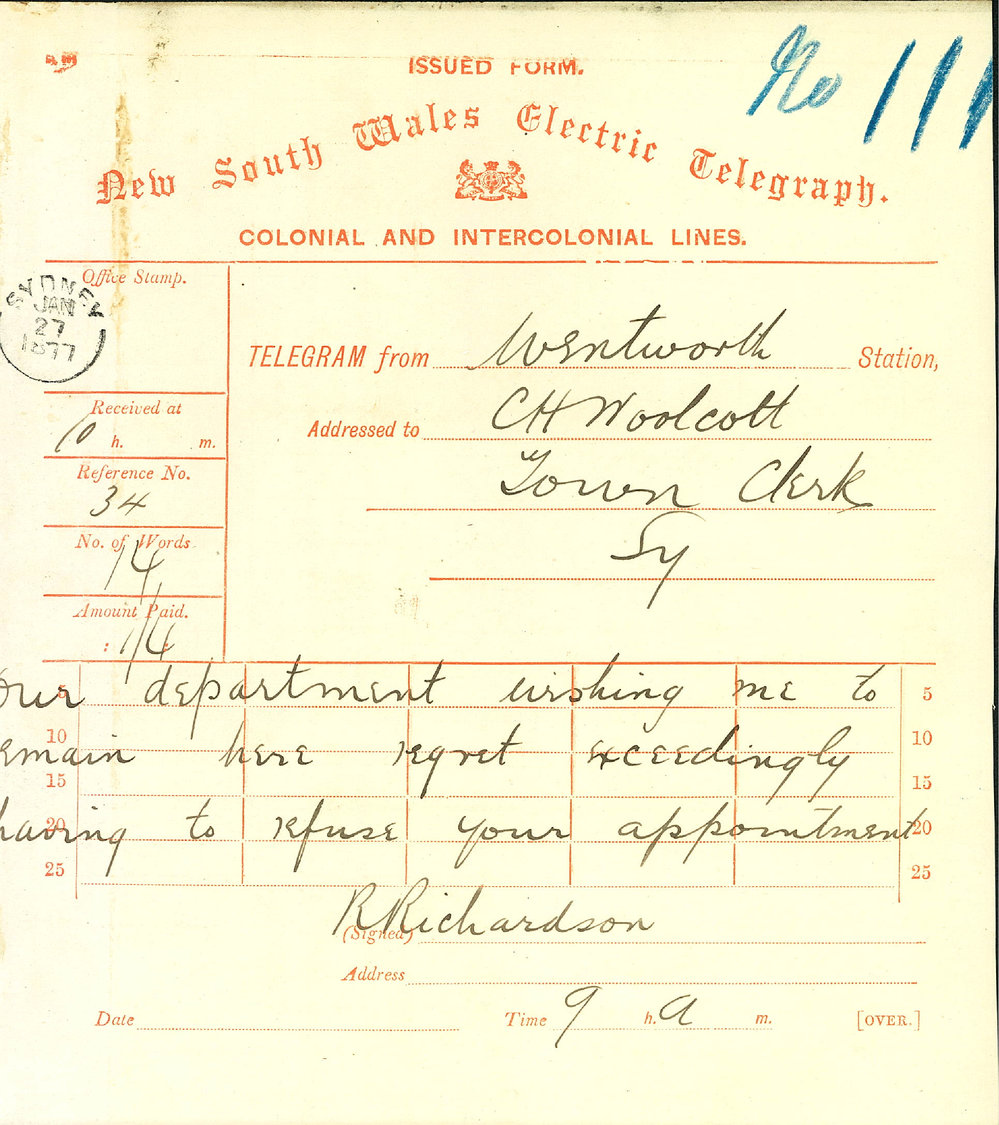 No 111
ISSUED FORM.
New South Wales Electric Telegraph.
COLONIAL AND INTERCOLONIAL LINES.
Office Stamp.
SYDNEY
JAN
27
1877
TELEGRAM from Wentworth Station,
Received at
10 h. m.
Addressed to CH Woolcott
Reference No.
34
Town Clerk
No. of Words
14
Sy
Amount Paid.
: 1/4 :
5 our department wishing me to 5
10 emain here regret exceedingly 10
15 15
20 having to refuse your appointment 20
25 25
(Signed) R Richardson
Address
Date Time 9 h. a m. [OVER.]